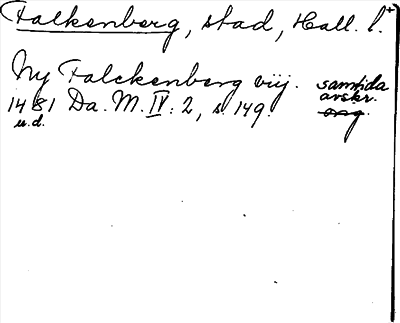 Falkenberg, stad, Hall. l.+
Ny Falckenberg viij. samtida avskr.
1481 Da. M. IV: 2, s. 149. ~~orig.~~
u.d.